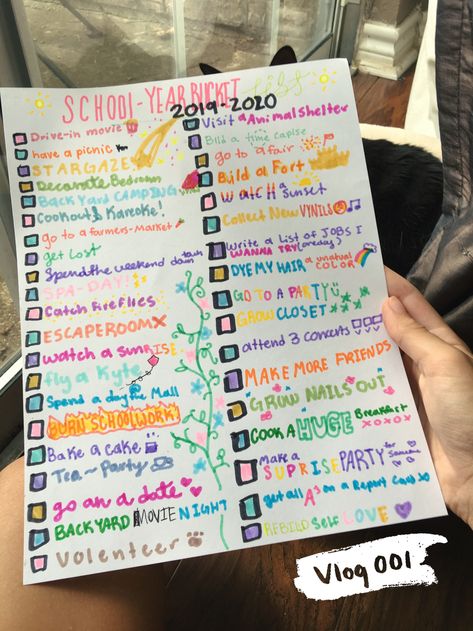 SCHOOL-YEAR BUCKET LIST
2019-2020
Drive-in movie
have a picnic
STARGAZE
Decorate Bedroom
BACKYARD CAMPING
Cookout & Kareoke!
go to a farmers-market
get Lost
Spend the weekend down town
SPA-DAY!
Catch fireflies
ESCAPEROOM
watch a sunRISE
fly a Kyte
Spend a day @ the Mall
BURN SCHOOLWORK
Bake a cake
Tea-Party
go on a date
BACKYARD MOVIE NIGHT
Volenteer
Visit a Animal shelter
Bild a time capsle
go to a fair
Build a Fort
WATCH a sunset
Collect New VYNILS
Write a List of JOBS I WANNA TRY (one day)
DYE MY HAIR a unatural COLOR
GO TO A PARTY
GROW CLOSET
attend 3 concerts
MAKE MORE FRIENDS
GROW NAILS OUT
COOK A HUGE Breakfast
XOXOXO
Make a SUPRISE PARTY for someone
get all A's on a Report Card
REBILD self LOVE
Vlog 001